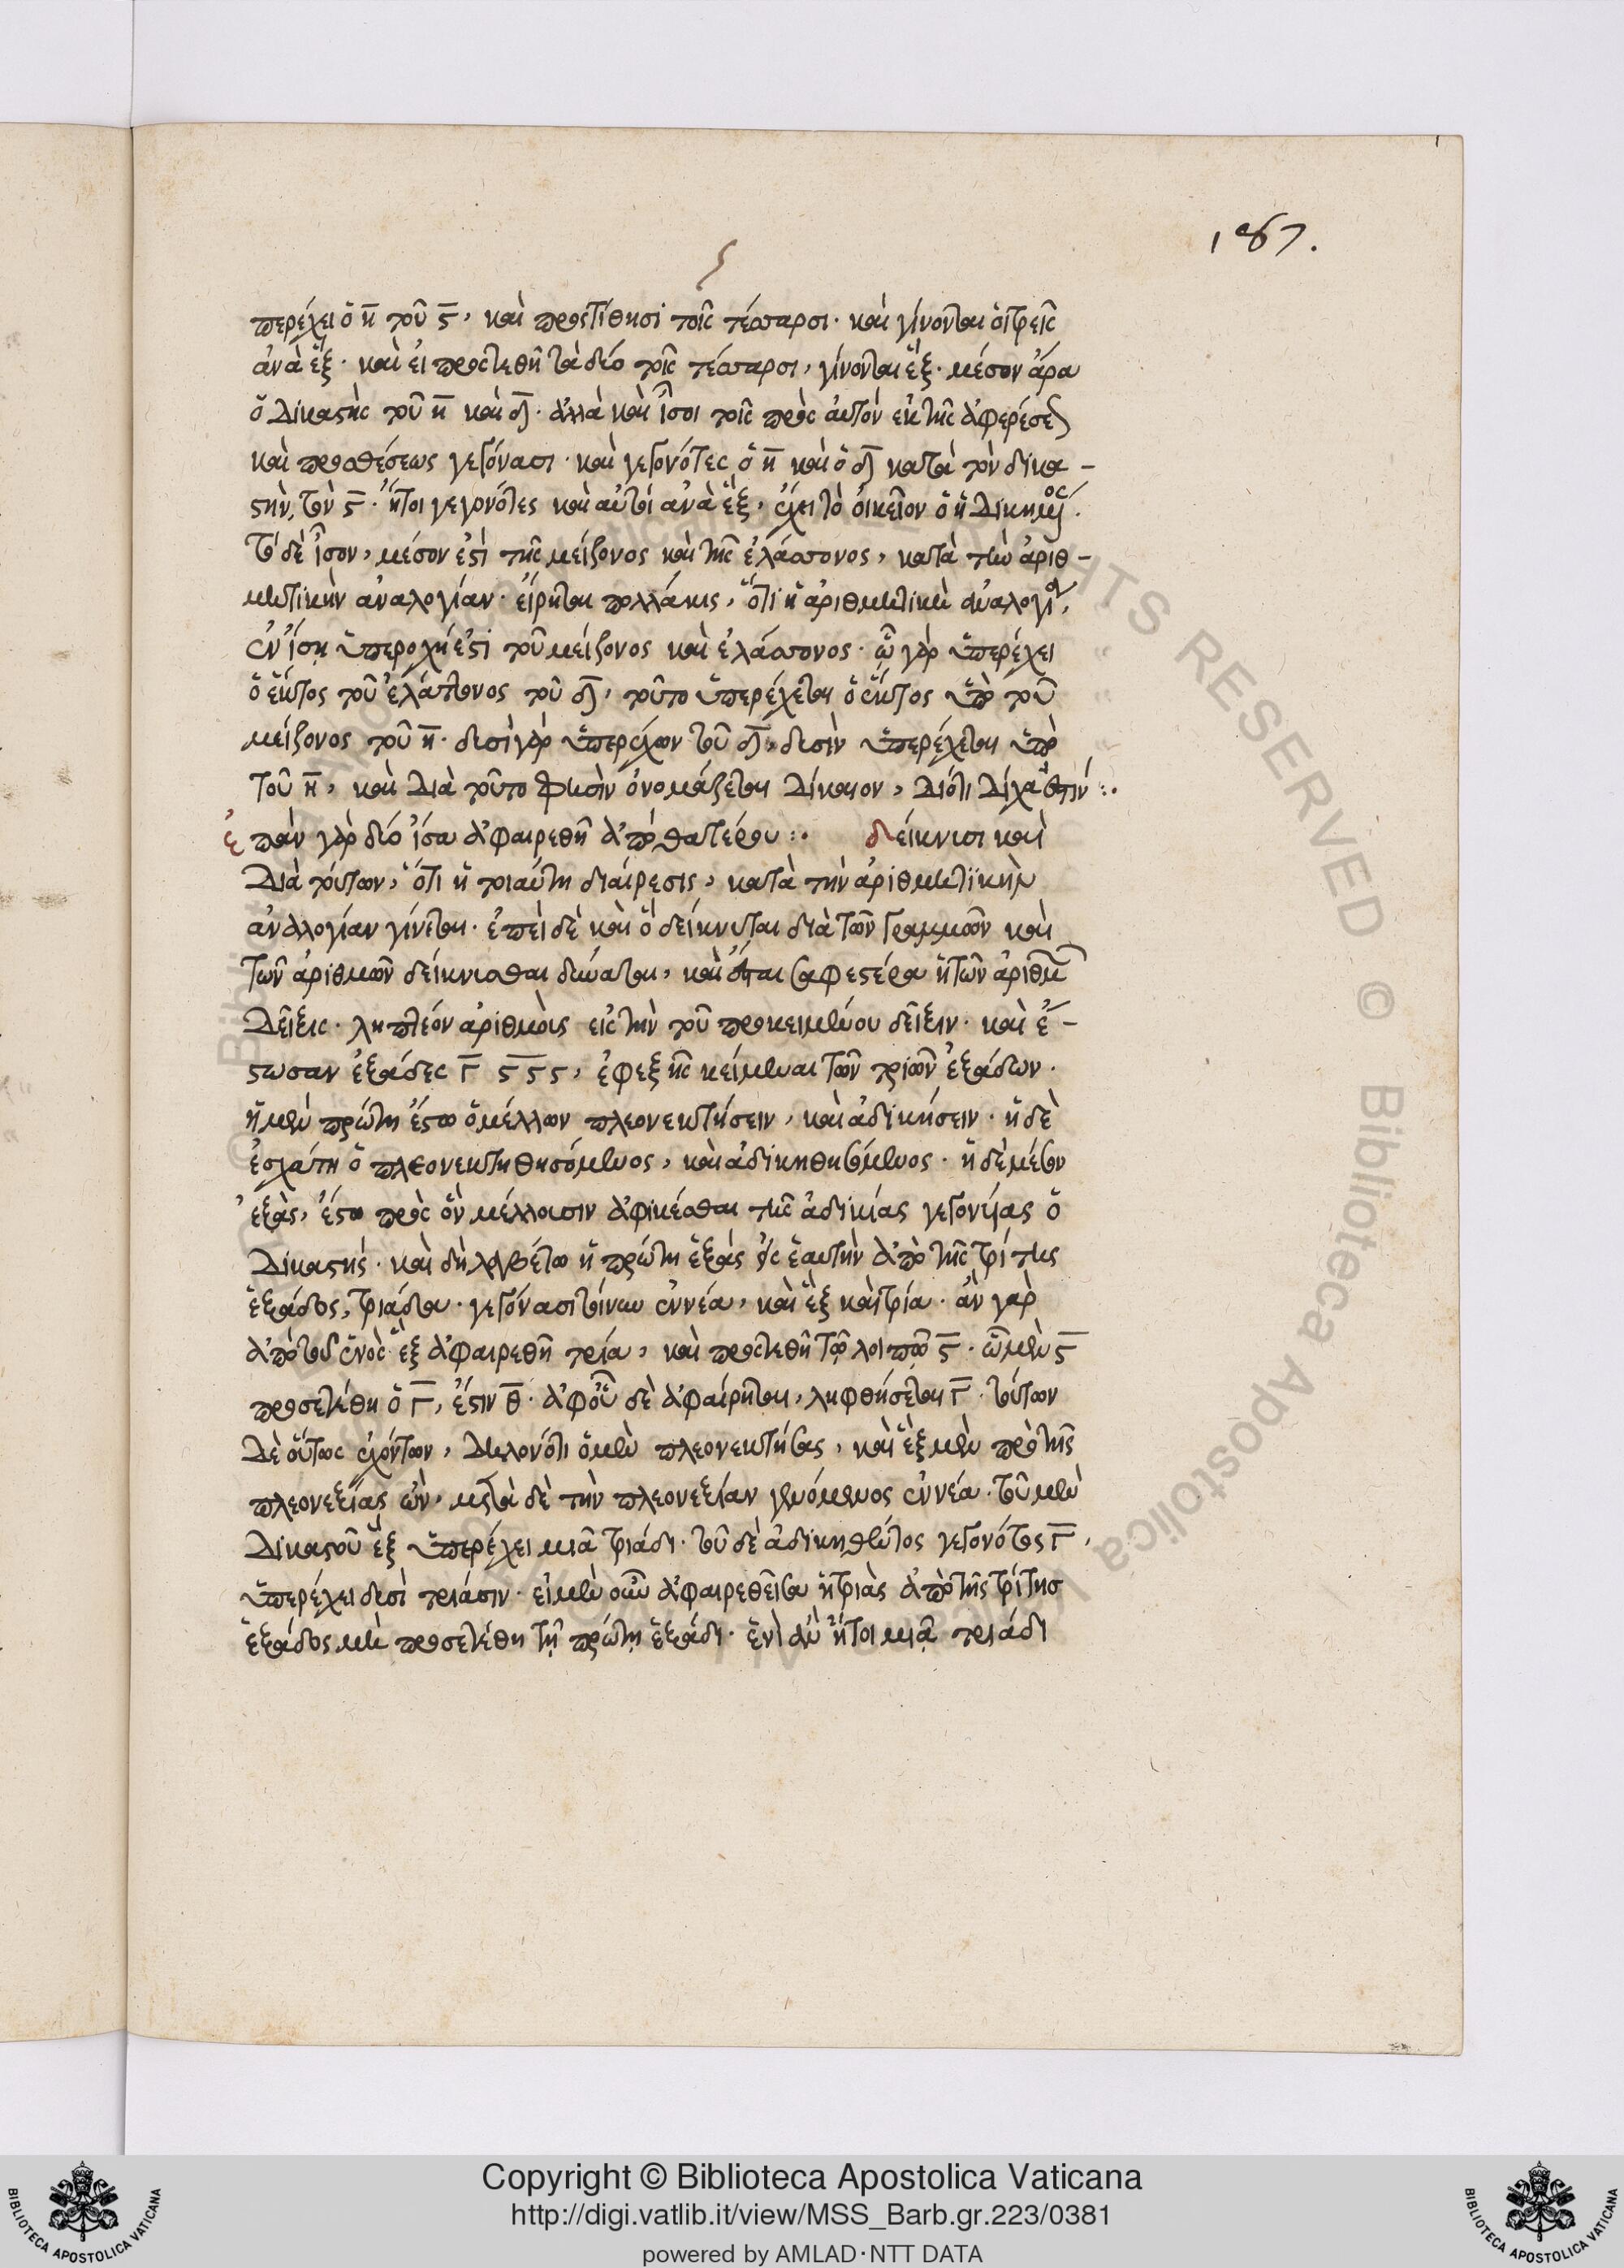 187.
ς
περέχει ὁ η̅ τοῦ ς̅, καὶ προστίθησι τοῖς τέσσαρσι· καὶ γίνονται οἱ τρεῖς
ἀνὰ ἕξ· καὶ εἰ προστεθῆ τὰ δύο τοῖς τέσσαρσι, γίνονται ἕξ· μέσον ἄρα
ὁ δικαστὴς τοῦ η̅ καὶ δ̅· ἀλλὰ καὶ ἴσοι τοῖς πρὸς αὐτόν ἐκ τῆς ἀφερέσε
καὶ προσθέσεως γεγόνασι· καὶ γεγονότες ὁ η̅ καὶ ὁ δ̅ κατὰ τὸν δικα-
στὴν, τὸν ς̅· ἤτοι γεγονότες καὶ αὐτοί ἀνὰ ἕξ, ἔχει τὸ οἰκεῖον ὁ ἠδικημ
τὸ δὲ ἴσον, μέσον ἐστὶ τῆς μείζονος καὶ τῆς ἐλάσσονος, κατὰ τὴν ἀριθ-
μητικὴν ἀναλογίαν· εἴρηται πολλάκις, ὅτι ἡ ἀριθμητικὴ ἀναλογία,
ἐν ἴσῃ ὑπεροχῆ ἐστὶ τοῦ μείζονος καὶ ἐλάσσονος· ᾧ γὰρ ὑπερέχει
ὁ ἕκτος τοῦ ἐλάττονος τοῦ δ̅, τοῦτο ὑπερέχεται ὁ ἕκτος ὑπὸ τοῦ
μείζονος τοῦ η̅· δυσὶ γὰρ ὑπερέχων τοῦ δ̅, δυσὶν ὑπερέχεται ὑπὸ
τοῦ η̅, καὶ διὰ τοῦτο φησὶν ὀνομάζεται δίκαιον, διότι δίχα ἐστίν:·
ἐπὰν γὰρ δύο ἴσα ἀφαιρεθῆ ἀπὸ θατέρου:· δείκνυσι καὶ
διὰ τούτων, ὅτι ἡ τοιαύτη διαίρεσις, κατὰ τὴν ἀριθμητικὴν
ἀναλογίαν γίνεται· ἐπεὶ δὲ καὶ ὃ δείκνυται διὰ τῶν γραμμῶν καὶ
τῶν ἀριθμῶν δείκνυσθαι δύναται, καὶ ἔσται σαφεστέρα ἡ τῶν ἀριθμ
δεῖξις· ληπτέον ἀριθμοὺς εἰς τὴν τοῦ προκειμένου δεῖξιν· καὶ ἔ-
στωσαν ἑξάδες γ̅ ς̅ ς̅ ς̅, ἐφεξῆς κείμεναι τῶν τριῶν ἑξάδων·
ἡ μὲν πρώτη ἔστω ὁ μέλλων πλεονεκτήσειν, καὶ ἀδικήσειν· ἡ δὲ
ἐσχάτη ὁ πλεονεκτηθησόμενος, καὶ ἀδικηθησόμενος· ἡ δὲ μέση
ἑξὰς, ἔστω πρὸς ὃν μέλλουσιν ἀφικέσθαι τῆς ἀδικίας γεγονυίας ὁ
δικαστής· καὶ δὴ λαβέτω ἡ πρώτη ἑξάς εἰς ἑαυτὴν ἀπὸ τῆς τρίτης
ἑξάδος, τριάδα· γεγόνασι τοίνυν ἐννέα, καὶ ἕξ καὶ τρία· ἂν γὰρ
ἀπὸ τοῦ ἑνὸς ἕξ ἀφαιρεθῆ τρία, καὶ προστεθῆ τῶ λοιπῶ ς̅· ᾧ μὲν ς̅
προσετέθη ὁ γ̅, ἔστιν θ̅· ἀφ' οὗ δὲ ἀφαίρηται, ληφθήσεται γ̅· τούτων
δὲ οὕτως ἐχόντων, δηλονότι ὁ μὲν πλεονεκτήσας, καὶ ἕξ μὲν πρὸ τῆς
πλεονεξίας ὢν, μετὰ δὲ τὴν πλεονεξίαν γενόμενος ἐννέα· τοῦ μὲν
δικαστοῦ ἕξ ὑπερέχει μιᾶ τριάδι· τοῦ δὲ ἀδικηθέντος γεγονότος γ̅,
ὑπερέχει δυσὶ τριάσιν· εἰ μὲν οὖν ἀφαιρεθεῖσα ἡ τριὰς ἀπὸ τῆς τρίτης
ἑξάδος μὴ προσετέθη τῇ πρώτῃ ἑξάδι· ἑνὶ ἂν ἤτοι μιᾷ τριάδι
Copyright © Biblioteca Apostolica Vaticana
http://digi.vatlib.it/view/MSS_Barb.gr.223/0381
powered by AMLAD·NTT DATA